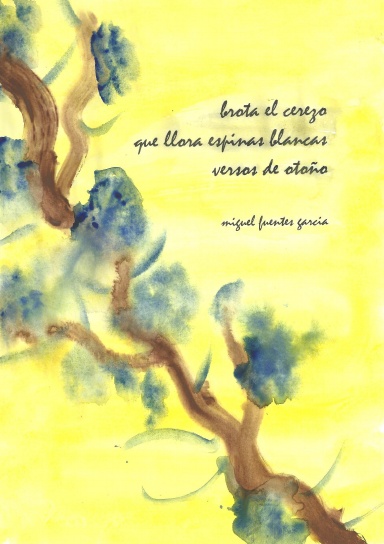 brota el cerezo
que llora espinas blancas
versos de otoño
miguel fuentes garcia